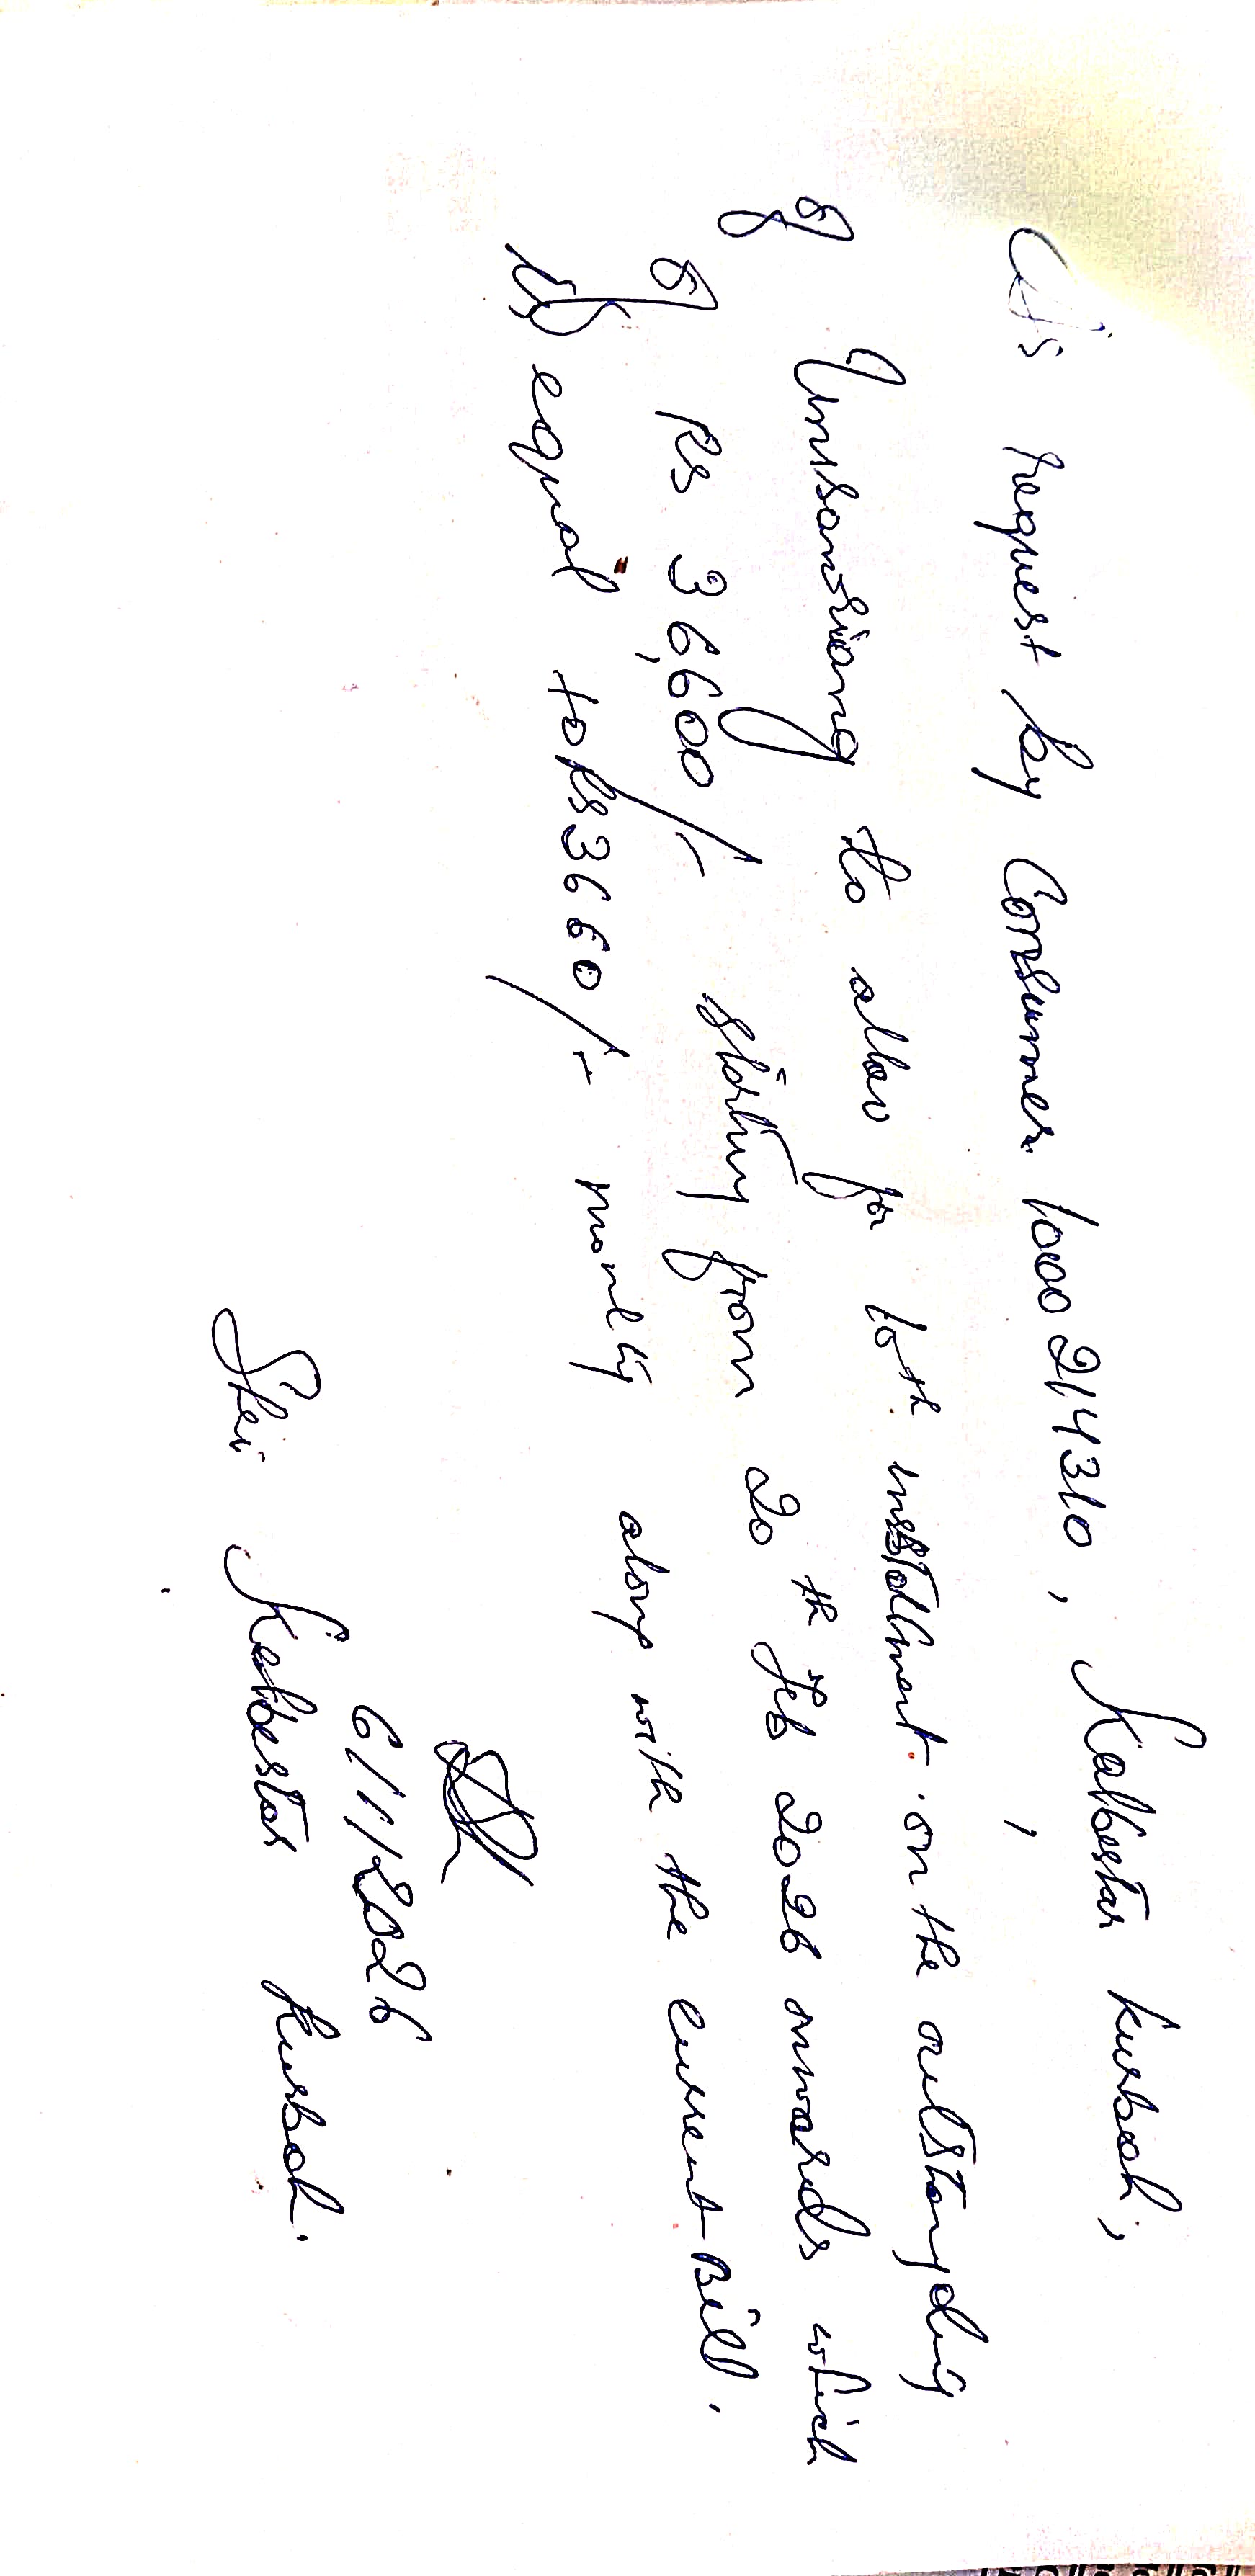 As request by Consumer 100214310, Kalbestar Kurbah,
of Umsawriang to allow for 10th installment. on the outstanding
of Rs 36,600/- starting from 20th Feb 2026 onwards which
is equal to Rs 3660/- monthly along with the current Bill.
6/1/2026
Shri Kalbestar Kurbah.